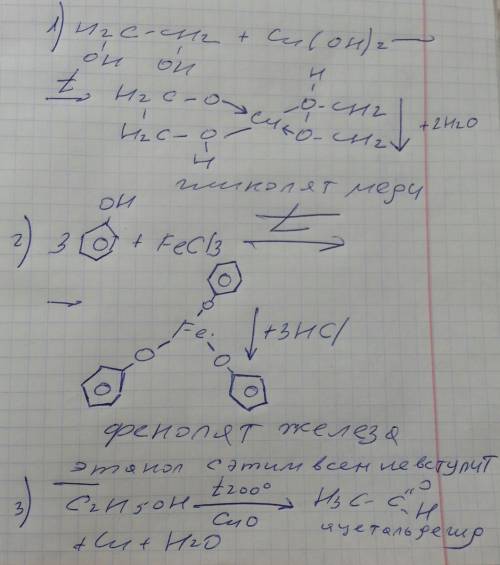 1) H2C-CH2 + Cu(OH)2 →
OH OH
t → H2C-O → Cu O-CH2 ↓ +2H2O
H
H2C-O O-CH2
H
гликолят меди
2) 3 OH + FeCl3 t →
→ O
Fe ↓ +3HCl
O O
фенолят железа
этанол с этим всем не вступит
3) C2H5OH t200° → H3C-C O H
CuO ацетальдегид
+Cu + H2O